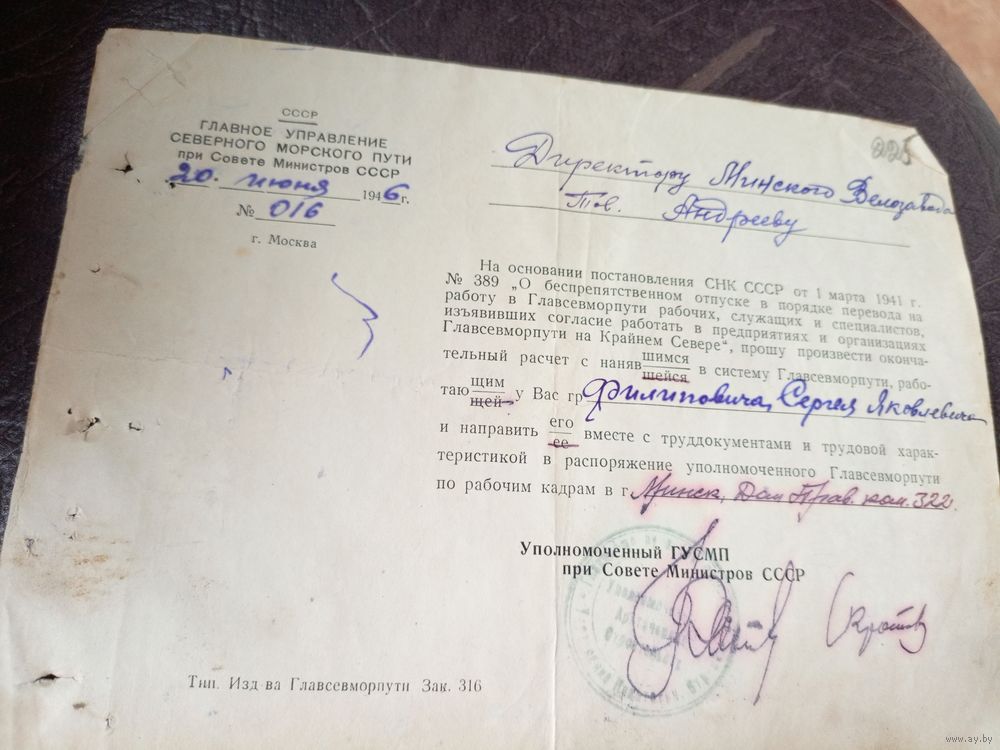 СССР
ГЛАВНОЕ УПРАВЛЕНИЕ
СЕВЕРНОГО МОРСКОГО ПУТИ
при Совете Министров СССР
20. июня 1946г.
№ 016
г. Москва
225
Директору Минского Велозавода
Тов. Андрееву
На основании постановления СНК СССР от 1 марта 1941 г.
№ 389 „О беспрепятственном отпуске в порядке перевода на
работу в Главсевморпути рабочих, служащих и специалистов,
изъявивших согласие работать в предприятиях и организациях
Главсевморпути на Крайнем Севере“, прошу произвести оконча-
тельный расчет с наняв
шимся
шейся
в систему Главсевморпути, рабо-
таю
щим
щей
у Вас гр. Филиповича, Сергея Яковлевича
и направить
его
ее
вместе с труддокументами и трудовой харак-
теристикой в распоряжение уполномоченного Главсевморпути
по рабочим кадрам в г. Минск, Дом Прав. ком. 322.
Уполномоченный ГУСМП
при Совете Министров СССР
Тип. Изд-ва Главсевморпути Зак. 316
www.ay.by